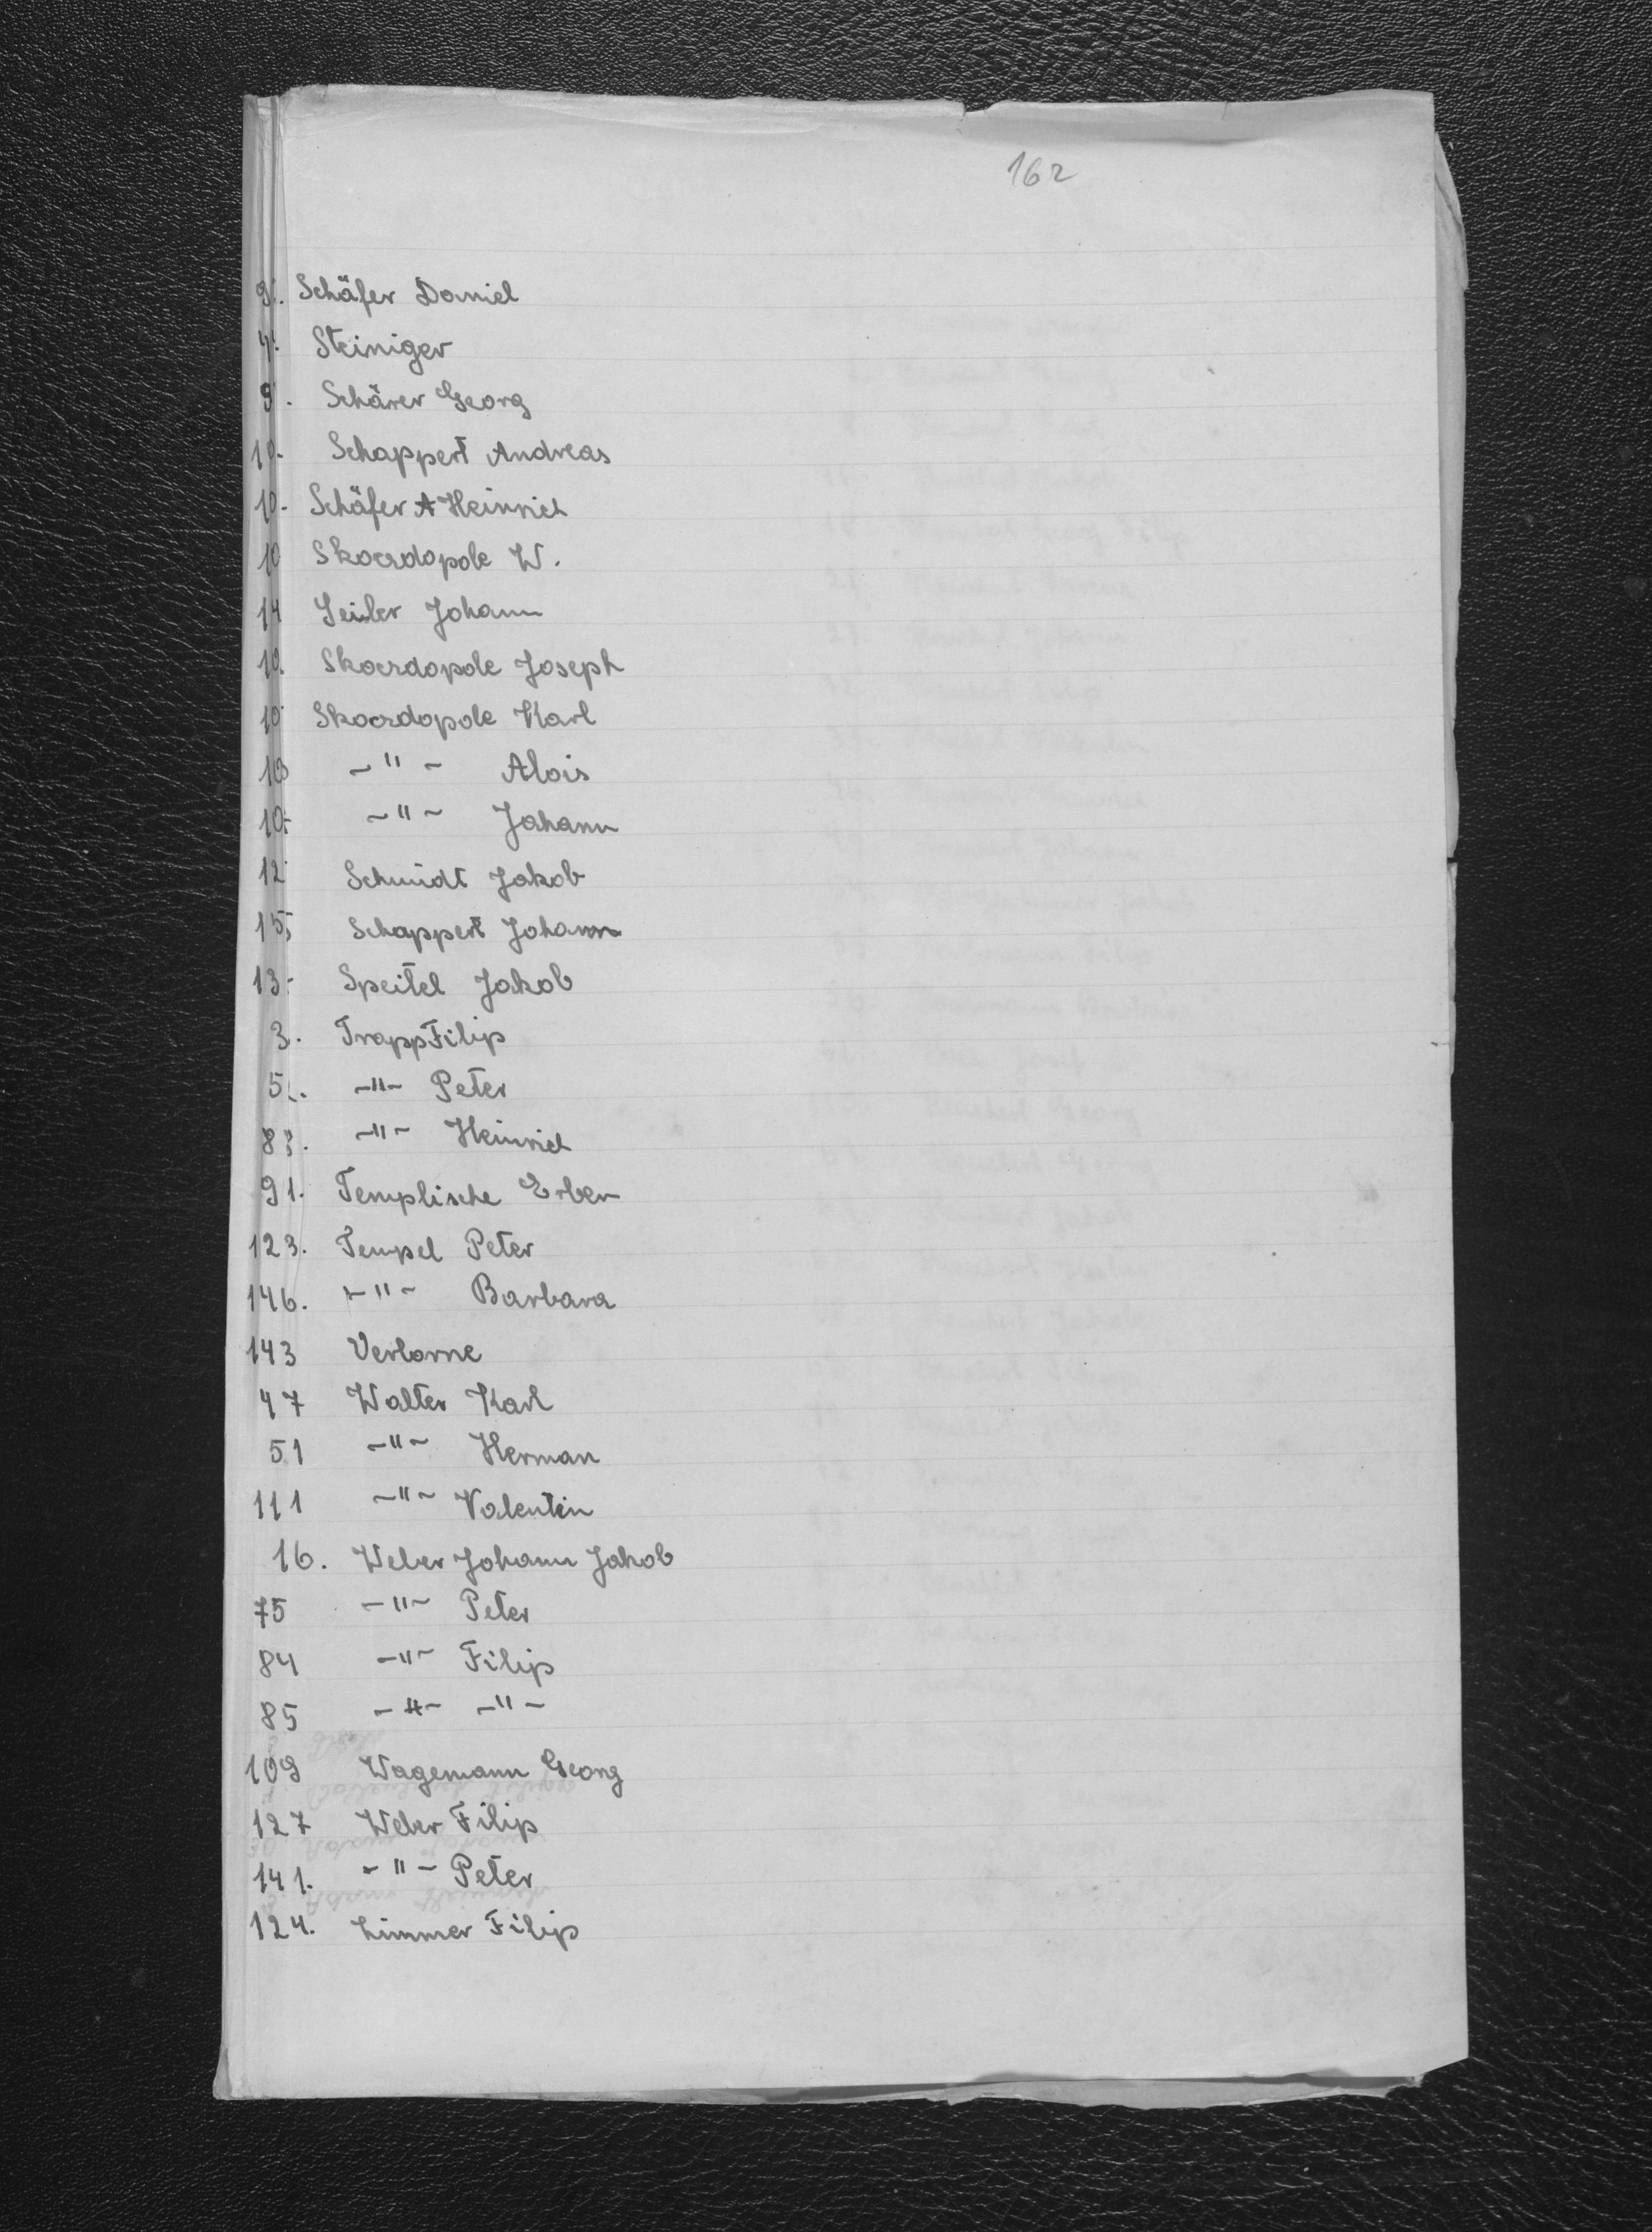 162
9. Schäfer Daniel
4. Steiniger
9. Schärer Georg
10. Schappert Andreas
10. Schäfer A Heinrich
10 Skoerdopole W.
14 Seiler Johann
10. Skoerdopole Joseph
10 Skoerdopole Karl
10 -"- Alois
10. -"- Johann
12 Schmidt Jakob
15 Schappert Johann
13. Speitel Jakob
3. Trapp Filip
5. -"- Peter
83. -"- Heinrich
91. Templische Erben
123. Tempel Peter
146. -"- Barbara
143 Verlorne
47 Walter Karl
51 -"- Herman
111 -"- Valentin
16. Weber Johann Jakob
75 -"- Peter
84 -"- Filip
85 -"- -"-
109 Wagemann Georg
127 Weber Filip
141. -"- Peter
124. Zimmer Filip